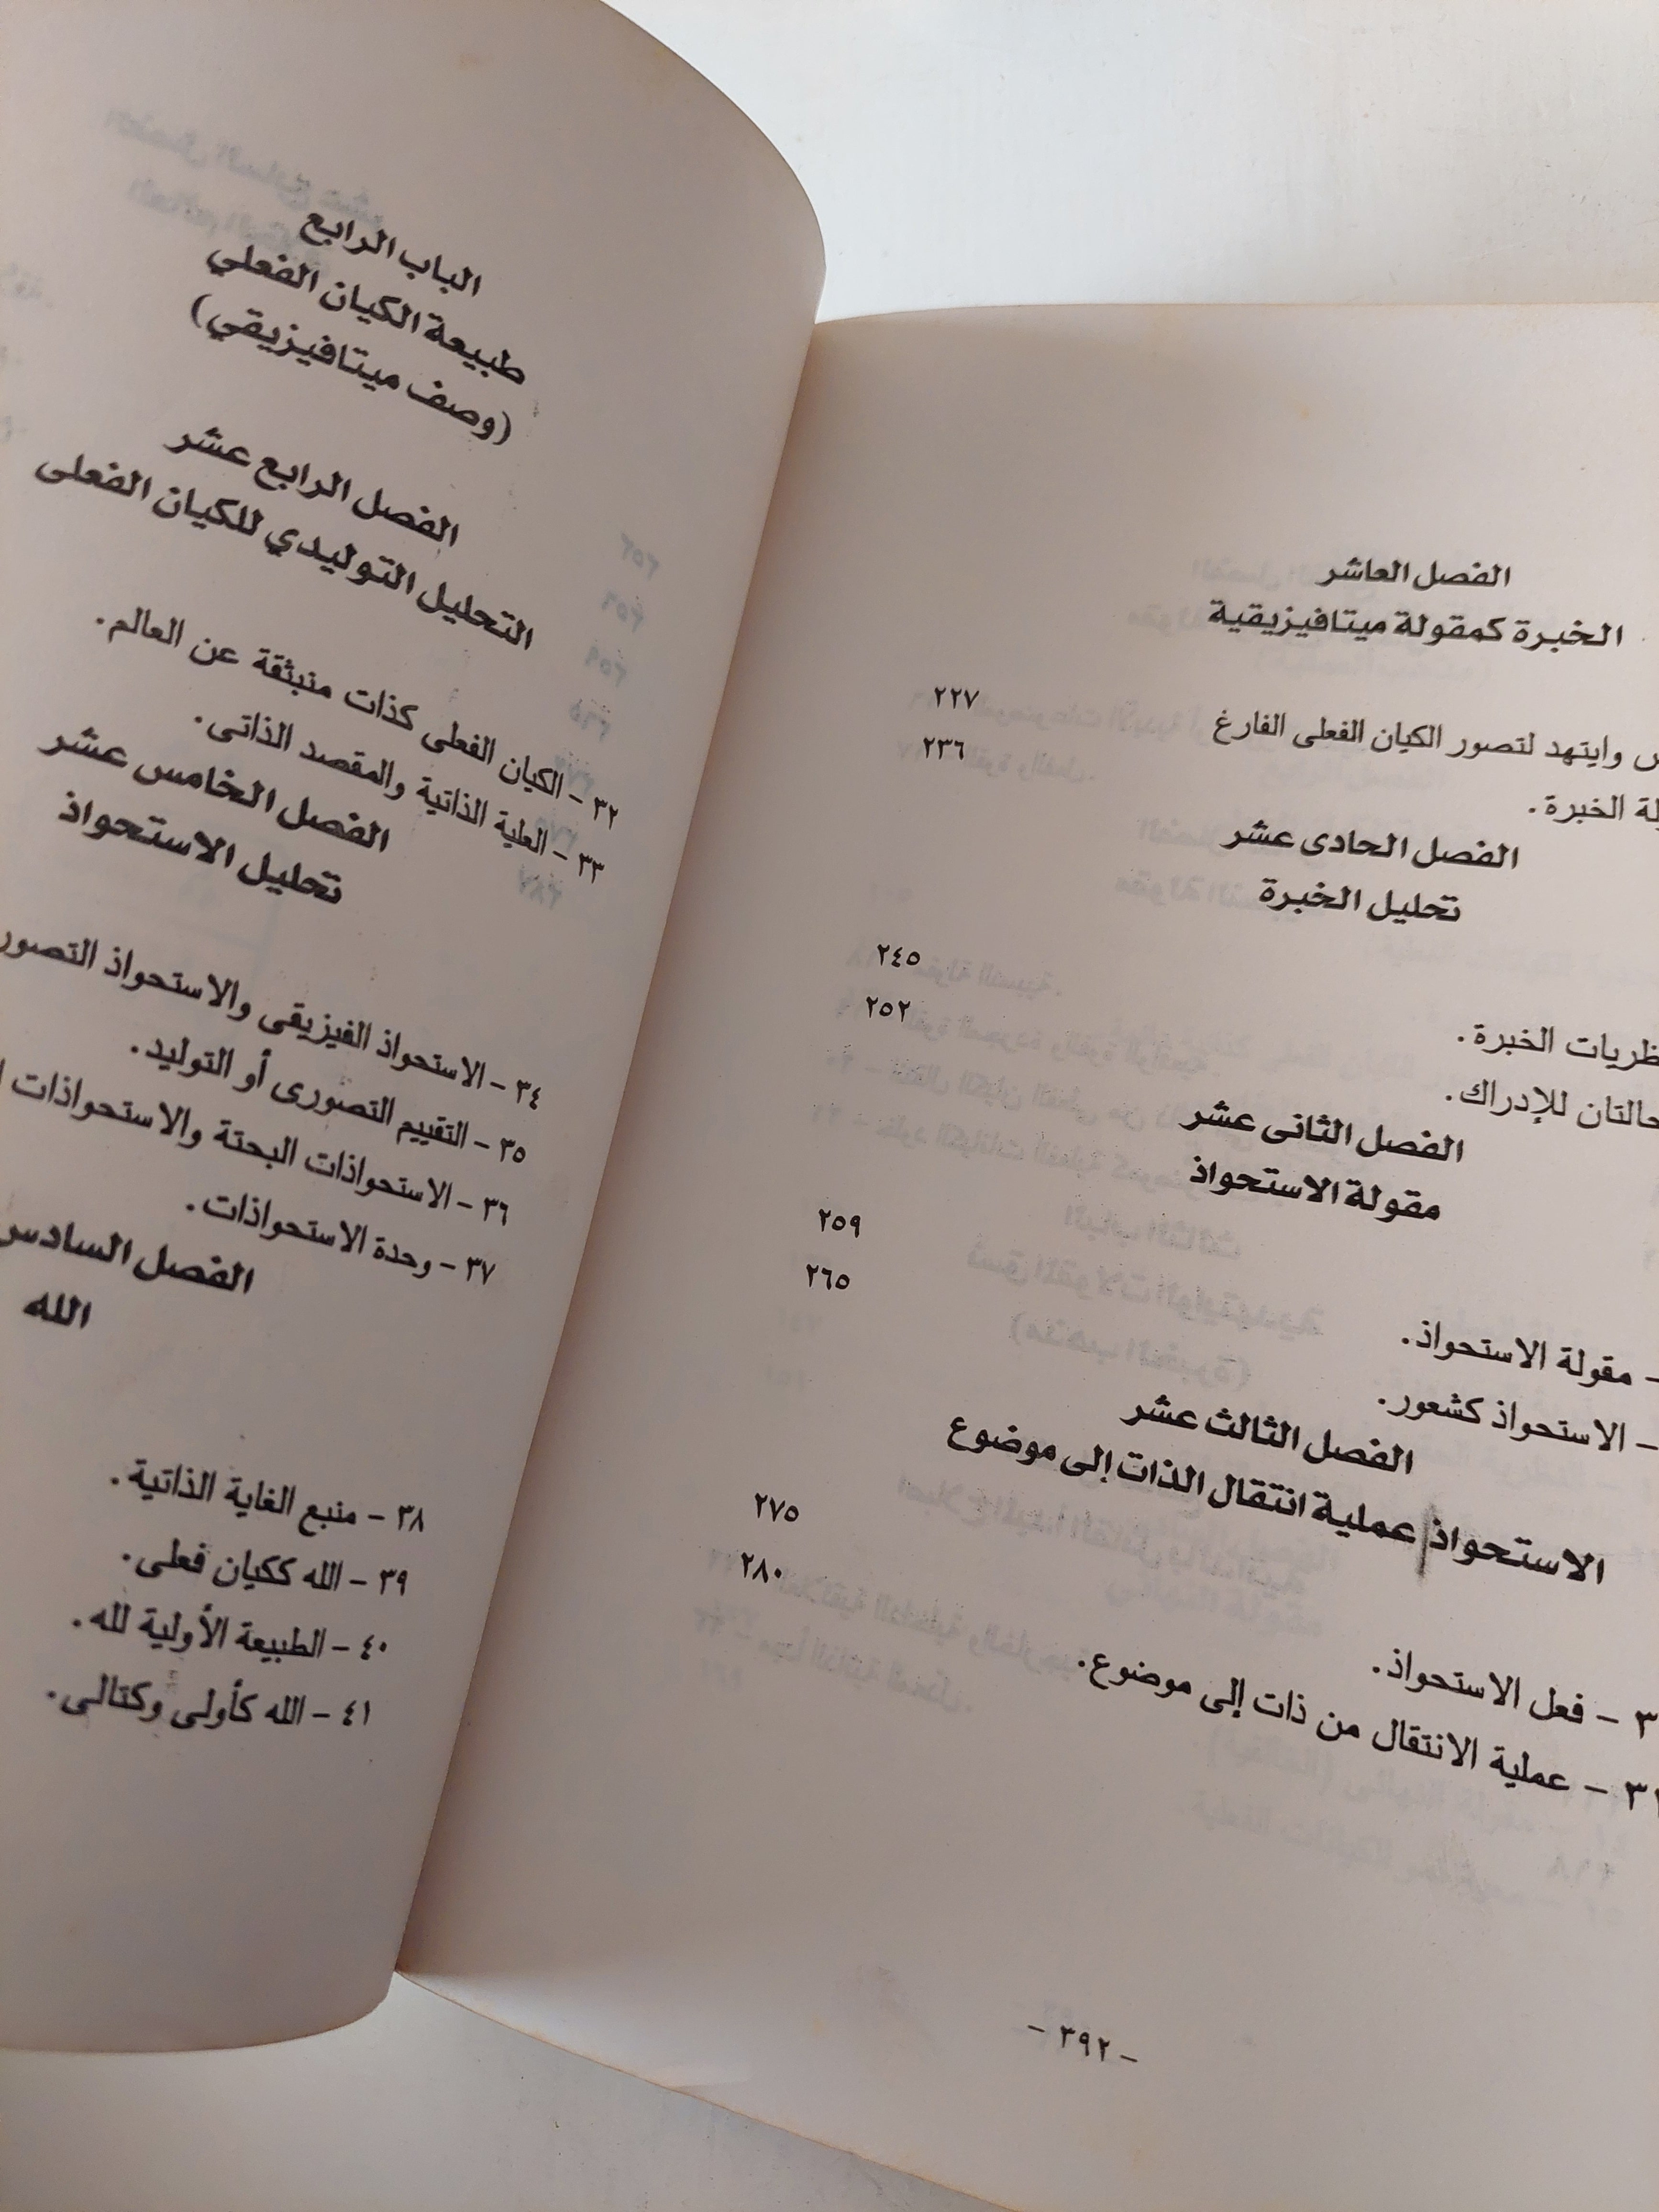 الفصل العاشر
الخبرة كمقولة ميتافيزيقية
وايتهد لتصور الكيان الفعلى الفارغ ٢٢٧
الخبرة. ٢٣٦
الفصل الحادى عشر
تحليل الخبرة
الخبرة. ٢٤٥
للإدراك. ٢٥٢
الفصل الثانى عشر
مقولة الاستحواذ
- مقولة الاستحواذ. ٢٥٩
- الاستحواذ كشعور. ٢٦٥
الفصل الثالث عشر
الاستحواذ عملية انتقال الذات إلى موضوع
- فعل الاستحواذ. ٢٧٥
- عملية الانتقال من ذات إلى موضوع. ٢٨٠
- ٣٩٢ -
الباب الرابع
طبيعة الكيان الفعلي
(وصف ميتافيزيقي)
الفصل الرابع عشر
التحليل التوليدي للكيان الفعلى
٣٢ - الكيان الفعلى كذات منبثقة عن العالم.
٣٣ - العلية الذاتية والمقصد الذاتى.
الفصل الخامس عشر
تحليل الاستحواذ
٣٤ - الاستحواذ الفيزيقى والاستحواذ
٣٥ - التقييم التصورى أو التوليد.
٣٦ - الاستحواذات البحتة والاستحواذات
٣٧ - وحدة الاستحواذات.
الفصل السادس
الله
٣٨ - منبع الغاية الذاتية.
٣٩ - الله ككيان فعلى.
٤٠ - الطبيعة الأولية لله.
٤١ - الله كأولى وكتالى.